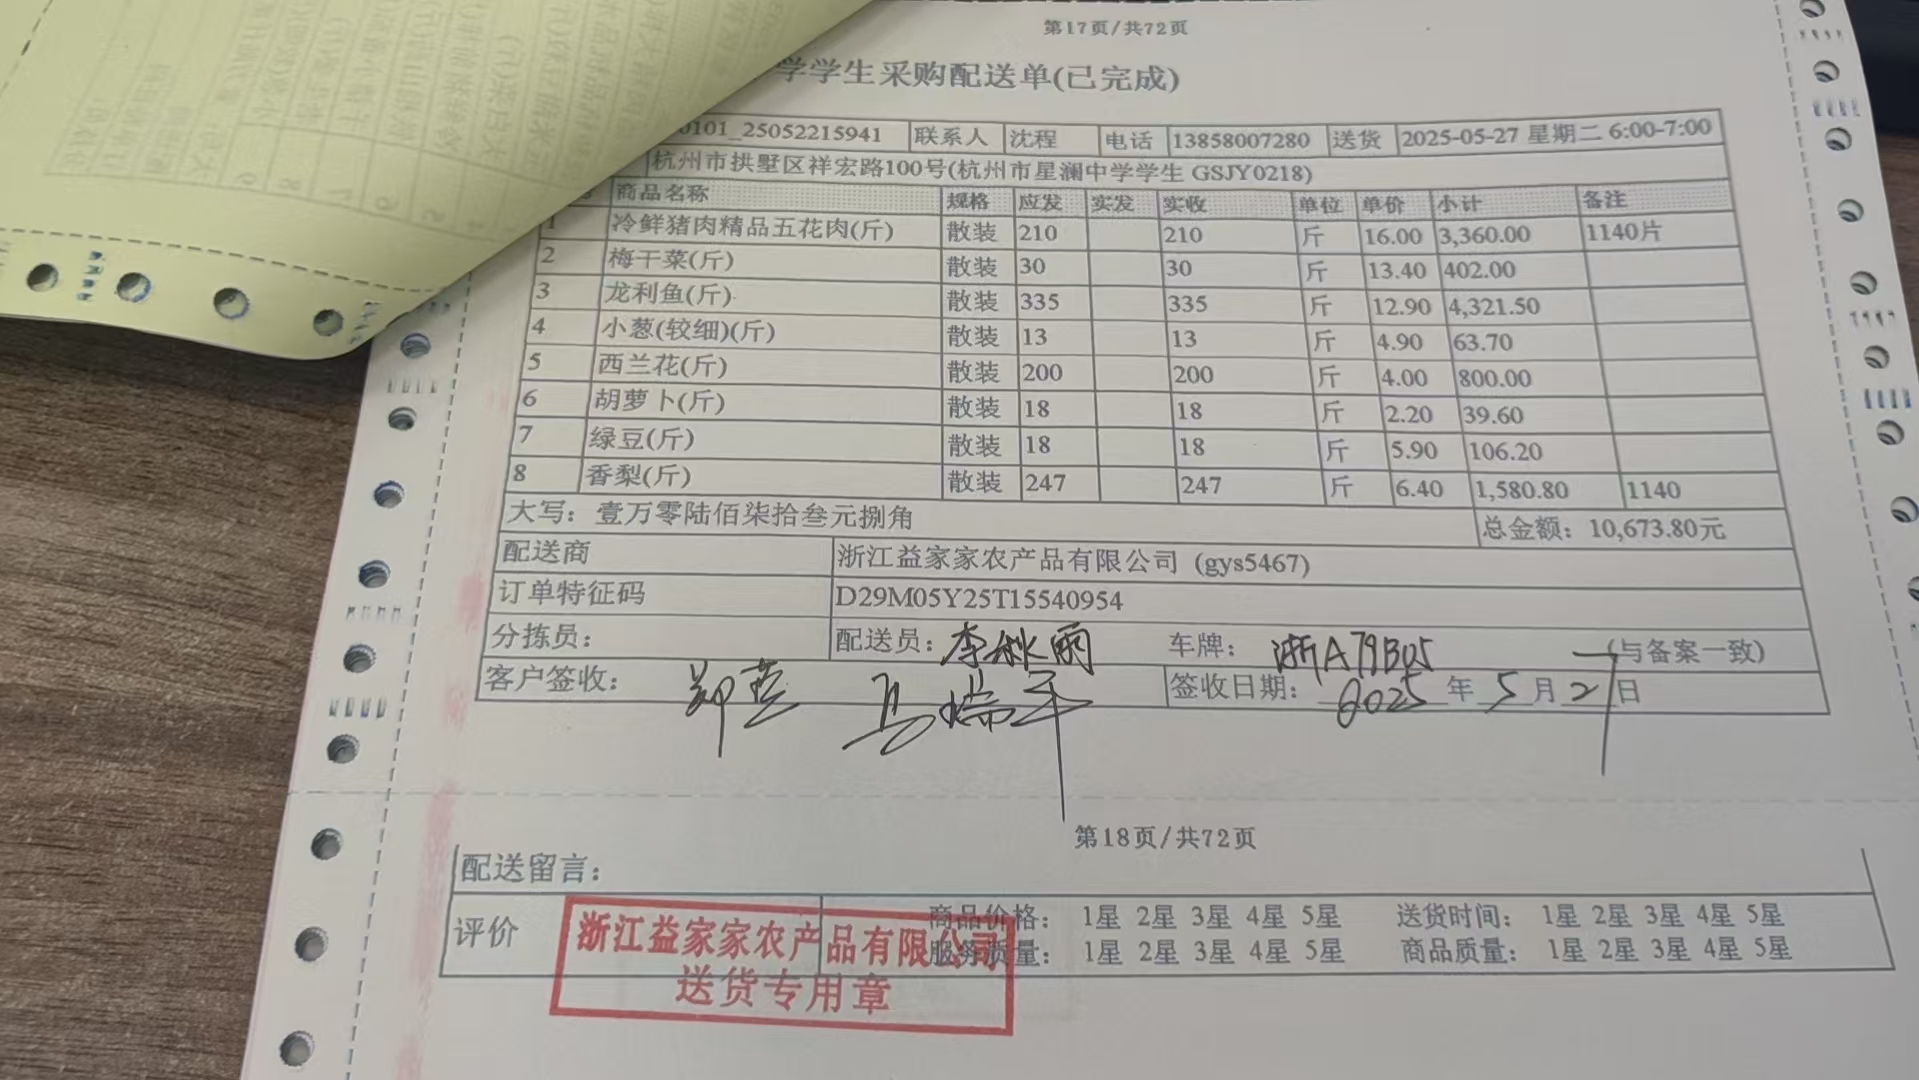 第17页/共72页
学学生采购配送单(已完成)
0101_25052215941 联系人 沈程 电话 13858007280 送货 2025-05-27 星期二 6:00-7:00
杭州市拱墅区祥宏路100号(杭州市星澜中学学生 GSJY0218)
商品名称 规格 应发 实发 实收 单位 单价 小计 备注
1 冷鲜猪肉精品五花肉(斤) 散装 210 210 斤 16.00 3,360.00 1140片
2 梅干菜(斤) 散装 30 30 斤 13.40 402.00
3 龙利鱼(斤) 散装 335 335 斤 12.90 4,321.50
4 小葱(较细)(斤) 散装 13 13 斤 4.90 63.70
5 西兰花(斤) 散装 200 200 斤 4.00 800.00
6 胡萝卜(斤) 散装 18 18 斤 2.20 39.60
7 绿豆(斤) 散装 18 18 斤 5.90 106.20
8 香梨(斤) 散装 247 247 斤 6.40 1,580.80 1140
大写：壹万零陆佰柒拾叁元捌角 总金额：10,673.80元
配送商 浙江益家家农产品有限公司 (gys5467)
订单特征码 D29M05Y25T15540954
分拣员： 配送员：李秋雨 车牌：浙A79B05 (与备案一致)
客户签收： 马瑞平 签收日期：2025年5月27日
第18页/共72页
配送留言：
评价 商品价格： 1星 2星 3星 4星 5星 送货时间： 1星 2星 3星 4星 5星
服务质量： 1星 2星 3星 4星 5星 商品质量： 1星 2星 3星 4星 5星
浙江益家家农产品有限公司
送货专用章